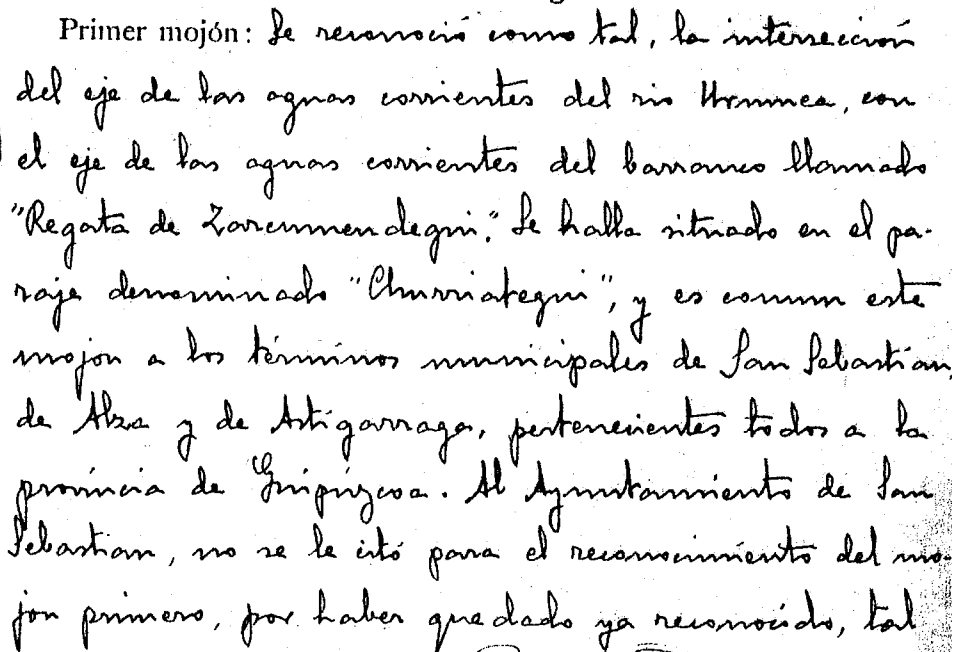 Primer mojón: Se reconoció como tal, la intersección
del eje de las aguas corrientes del rio Urumea, con
el eje de las aguas corrientes del barranco llamado
"Regata de Zarcumendegui". Se halla situado en el pa-
raje denominado "Churriategui", y es comun este
mojon a los términos municipales de San Sebastian,
de Alza y de Astigarraga, pertenecientes todos a la
provincia de Guipúzcoa. Al Ayuntamiento de San
Sebastian, no se le citó para el reconocimiento del mo-
jon primero, por haber quedado ya reconocido, tal